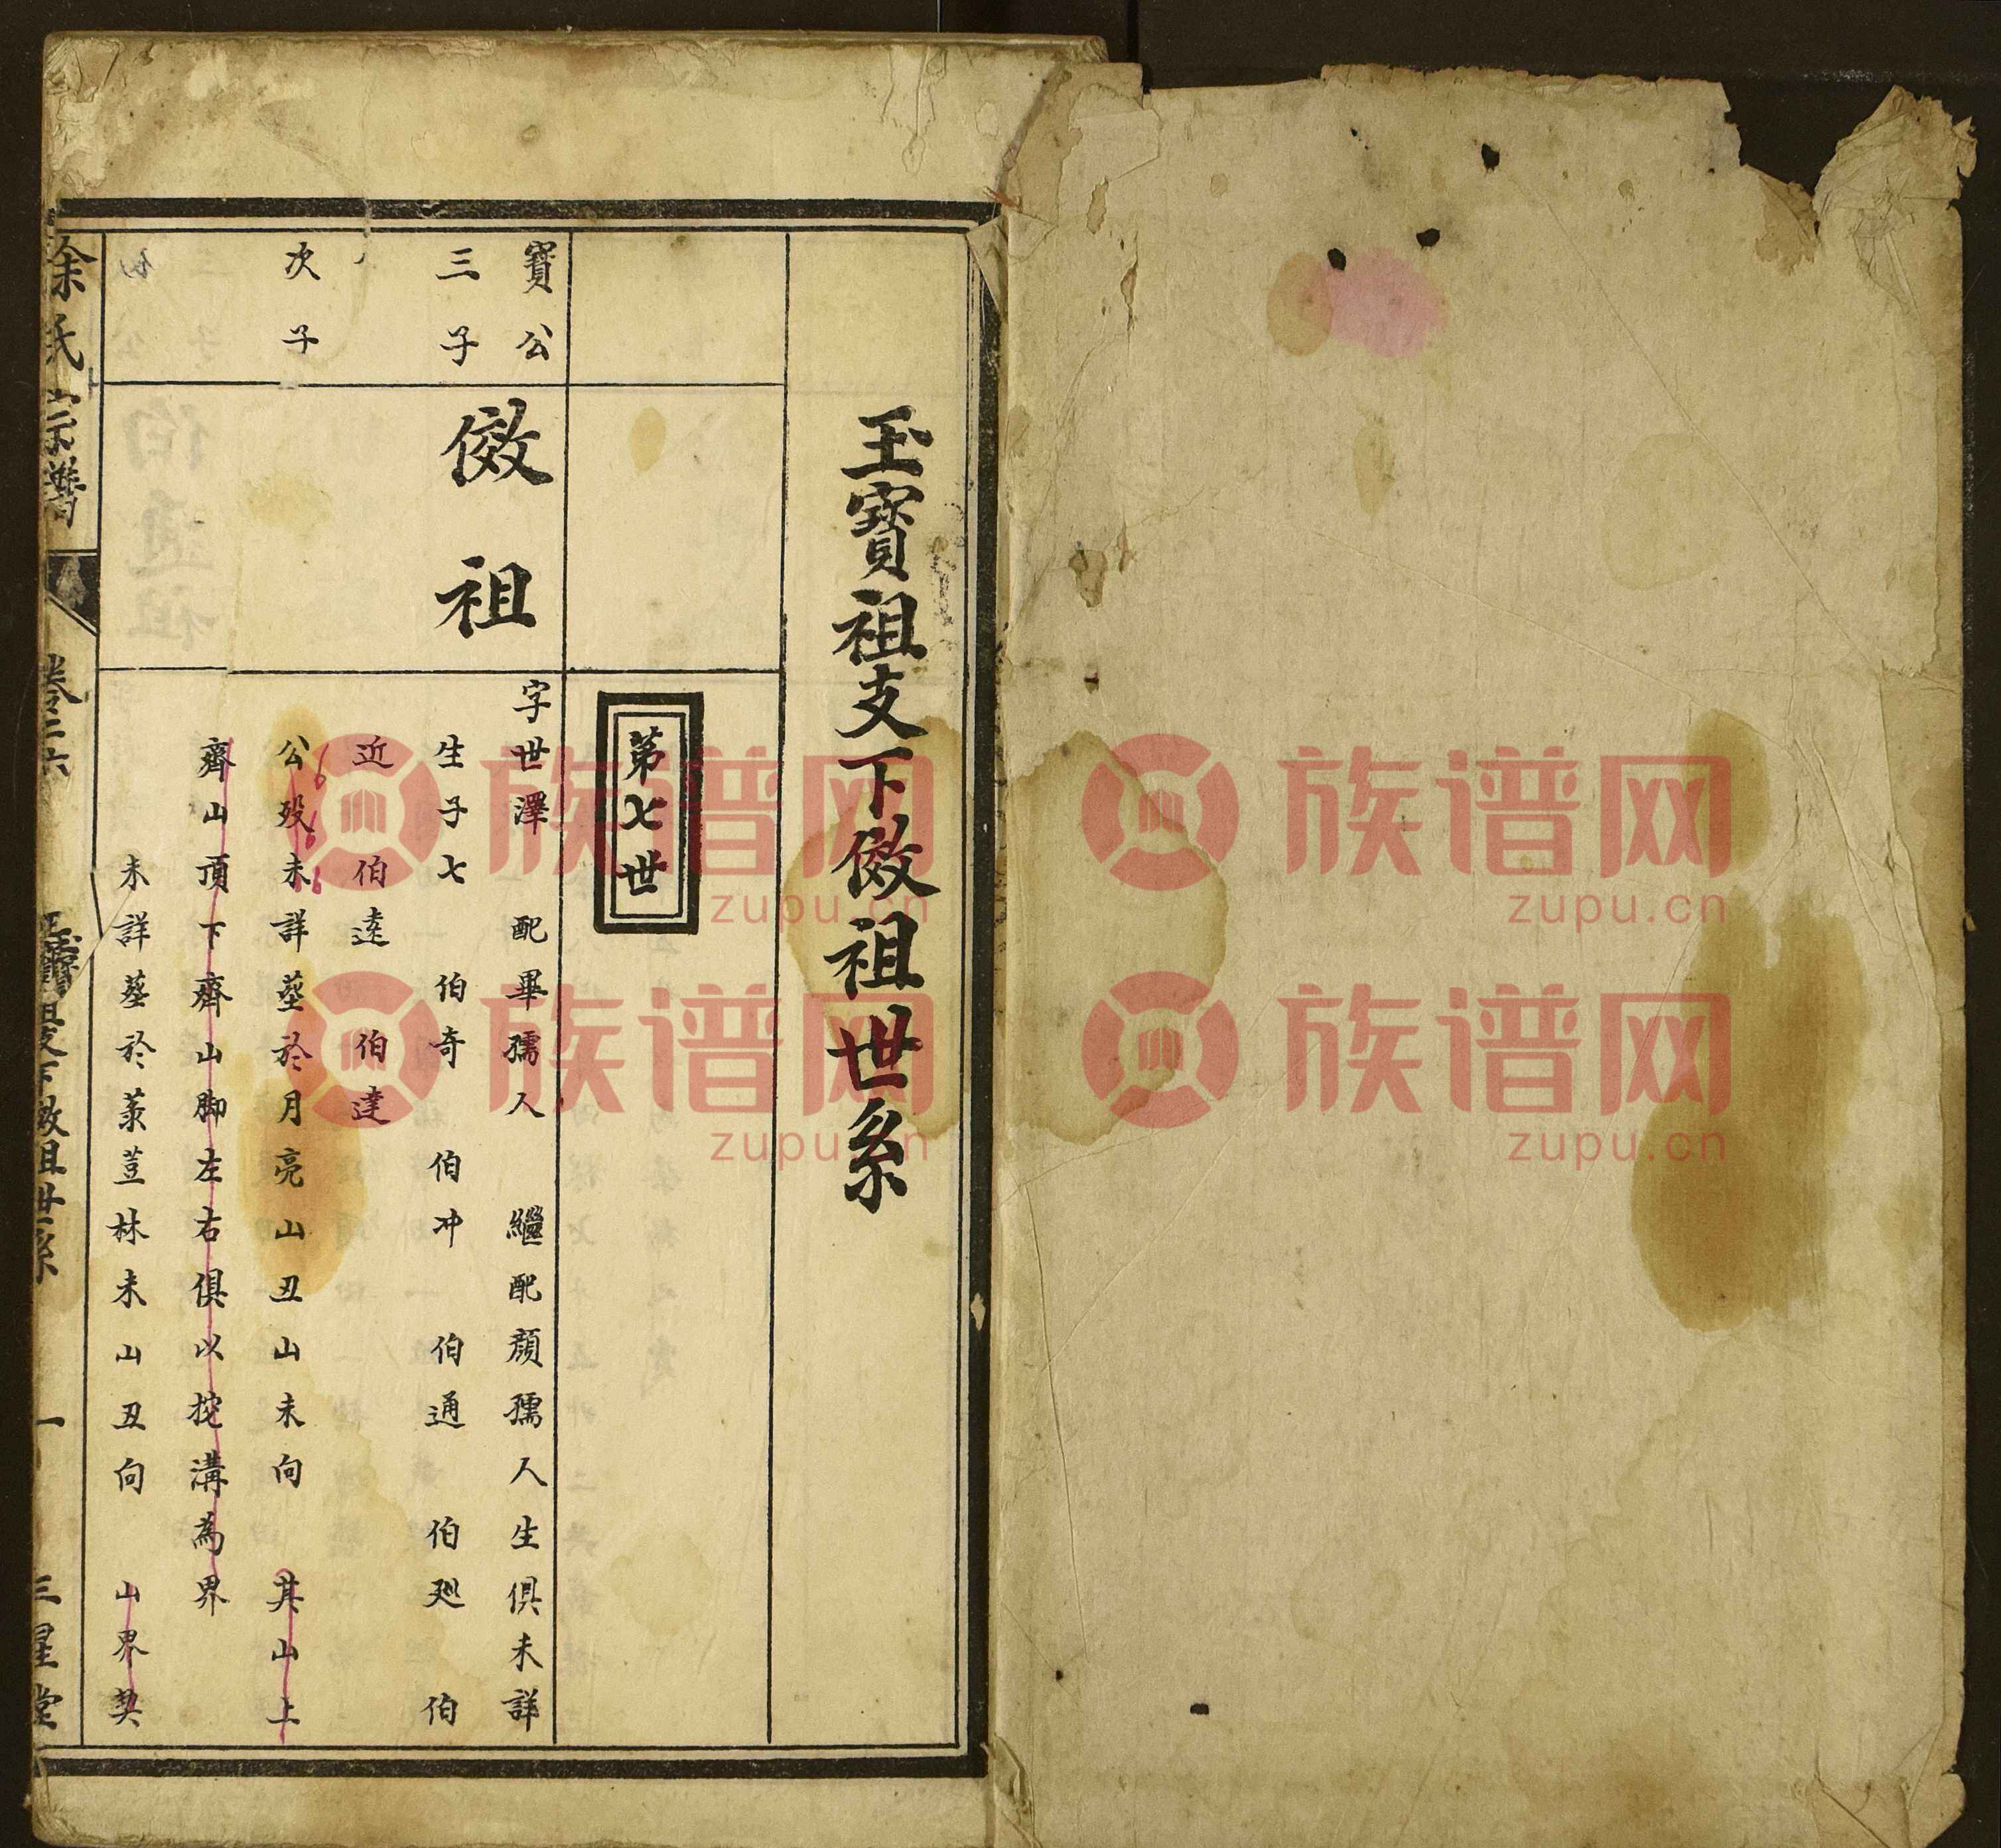 玉寶祖支下儌祖世系
第七世
寶公
三子
次子
儌祖
字世澤 配畢孺人 繼配顏孺人生俱未詳
生子七 伯奇 伯冲 伯通 伯廵 伯
近 伯逵 伯達
公歿未詳塟於月亮山丑山未向 其山上
齊山頂下齊山脚左右俱以挖溝為界
未詳塟於菉荳林未山丑向 山界契
徐氏宗譜 卷之六 玉寶祖支下儌祖世系 一 三星堂
族谱网
zupu.cn
族谱网
zupu.cn
族谱网
zupu.cn
族谱网
zupu.cn